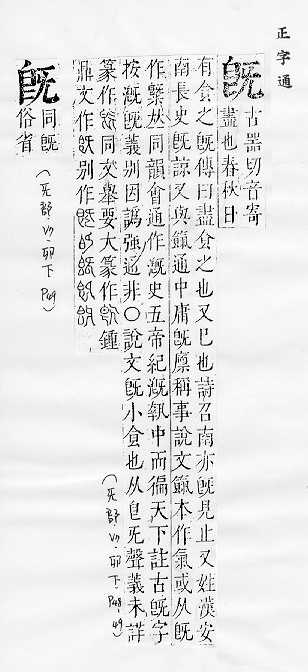 正字通
旣
古器切音寄
盡也春秋日
有食之旣傳曰盡食之也又已也詩召南亦旣見止又姓漢安
南長史旣諒又與餼通中庸旣廩稱事說文餼本作氣或从旣
作𠀤同韻會通作漑史五帝紀漑執中而徧天下註古旣字
按漑旣義别因譌強通非〇說文旣小食也从皀旡聲義未詳
篆作同文舉要大篆作鍾
鼎文作别作
(旡部.VII.卯下.P48,49)
既
同旣
俗省
(旡部.VII.卯下.P49)